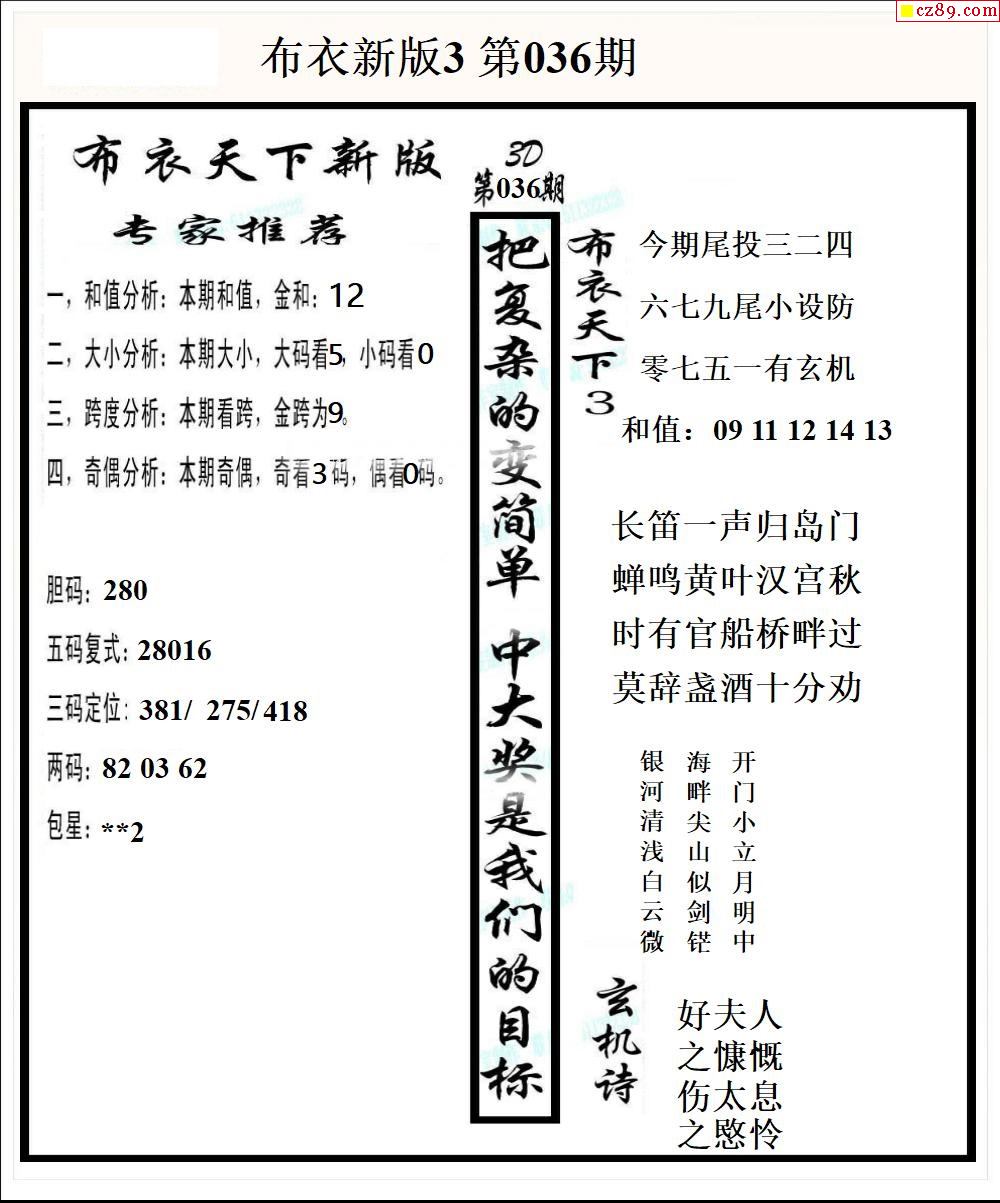 cz89.com
布衣新版3 第036期
布衣天下新版
专家推荐
一，和值分析：本期和值，金和：12
二，大小分析：本期大小，大码看5，小码看0
三，跨度分析：本期看跨，金跨为9。
四，奇偶分析：本期奇偶，奇看3码，偶看0码。
胆码：280
五码复式：28016
三码定位：381/ 275/418
两码：82 03 62
包星：**2
3D
第036期
把复杂的变简单 中大奖是我们的目标
布衣天下3
今期尾投三二四
六七九尾小设防
零七五一有玄机
和值：09 11 12 14 13
长笛一声归岛门
蝉鸣黄叶汉宫秋
时有官船桥畔过
莫辞盏酒十分劝
开门小立月明中
海畔尖山似剑铓
银河清浅白云微
玄机诗
好夫人
之慷慨
伤太息
之愍怜